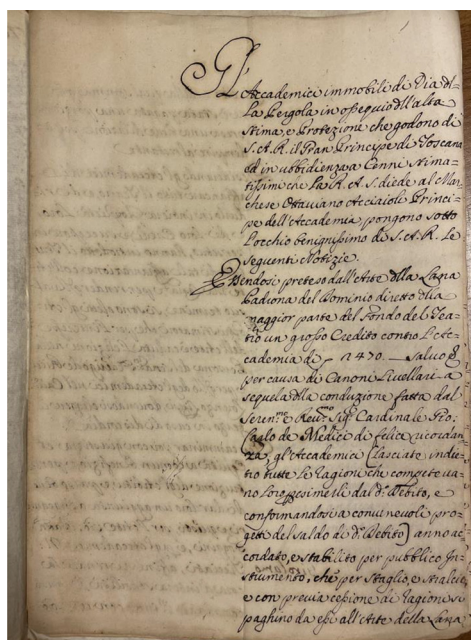 Gl'
Accademici immobili di Via d.
La Pergola in ossequio dll'alta
stima, e Protezione che godono di
S. A. R. il Gran Principe di Toscana
ed in ubbidienza a Cenni stima=
tissimi che La R. A. S. diede al Mar=
chese Ottaviano Acciaioli Princi=
pe dell'Accademia, pongono sotto
L'occhio benignissimo di S. A. R. Le
seguenti Notizie.
Essendosi preteso dall'Arte dlla Lana
Padrona del Dominio diretto dlla
maggior parte del Fondo del Tea=
tro un grosso Credito contro L'Ac=
cademia di 12470. Salvo
per causa di Canoni Livellari a
sequela dlla conduzione fatta dal
Seren.mo e Rev.mo Sig.r Cardinale Gio:
Carlo de Medici di felice ricordan=
za, gl'Accademici (lasciate indie=
tro tutte Le Ragioni che competeva=
no loro p esimersi dal d.o Debito, e
conformandosi a convenevoli pro=
getti del saldo di d.o Debito) anno ac=
cordato, e stabilito per pubblico In=
strumento, che per staglio, e stralcio,
e con previa cessione di Ragioni si
paghino da essi all'Arte della Lana